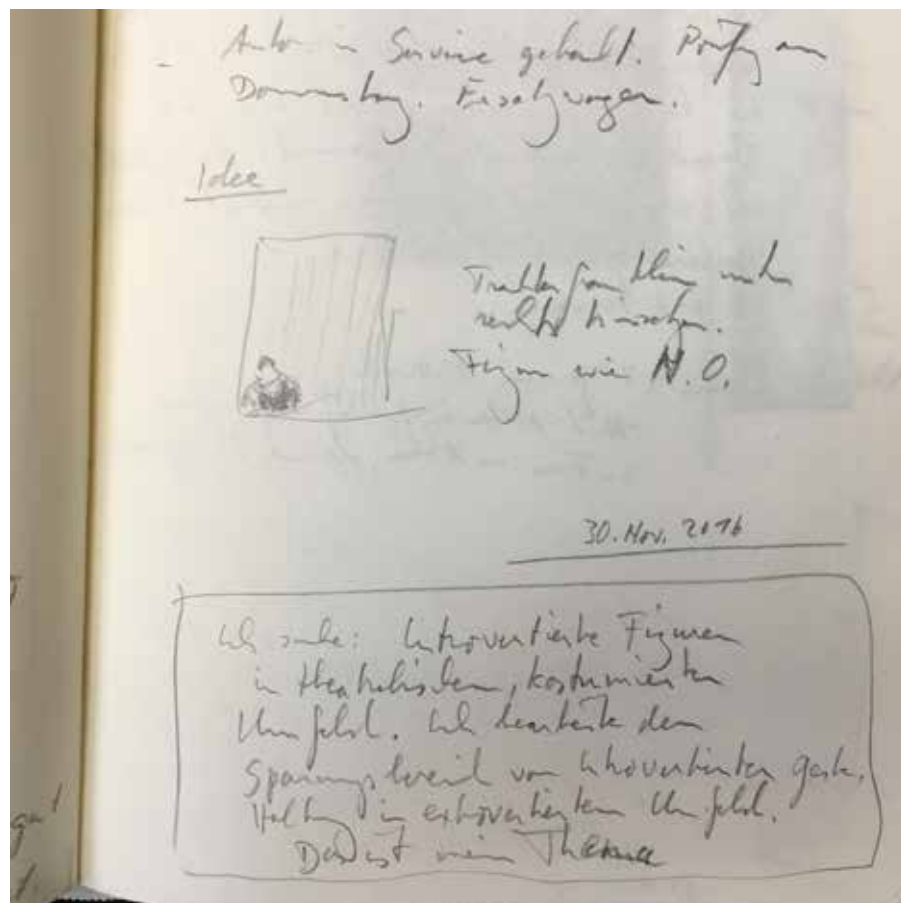 - Auto in Service gebracht. Prüfg am
Donnerstag. Ersatzwagen.
Idee
klein unten
rechts
Figur wie N.O.
30. Nov. 2016
Ich suche: Introvertierte Figuren
in theatralischem, kostümierten
Umfeld. Ich bearbeite den
Spannungsbereich von introvertierter Geste,
Haltung in extrovertiertem Umfeld.
Das ist mein Thema